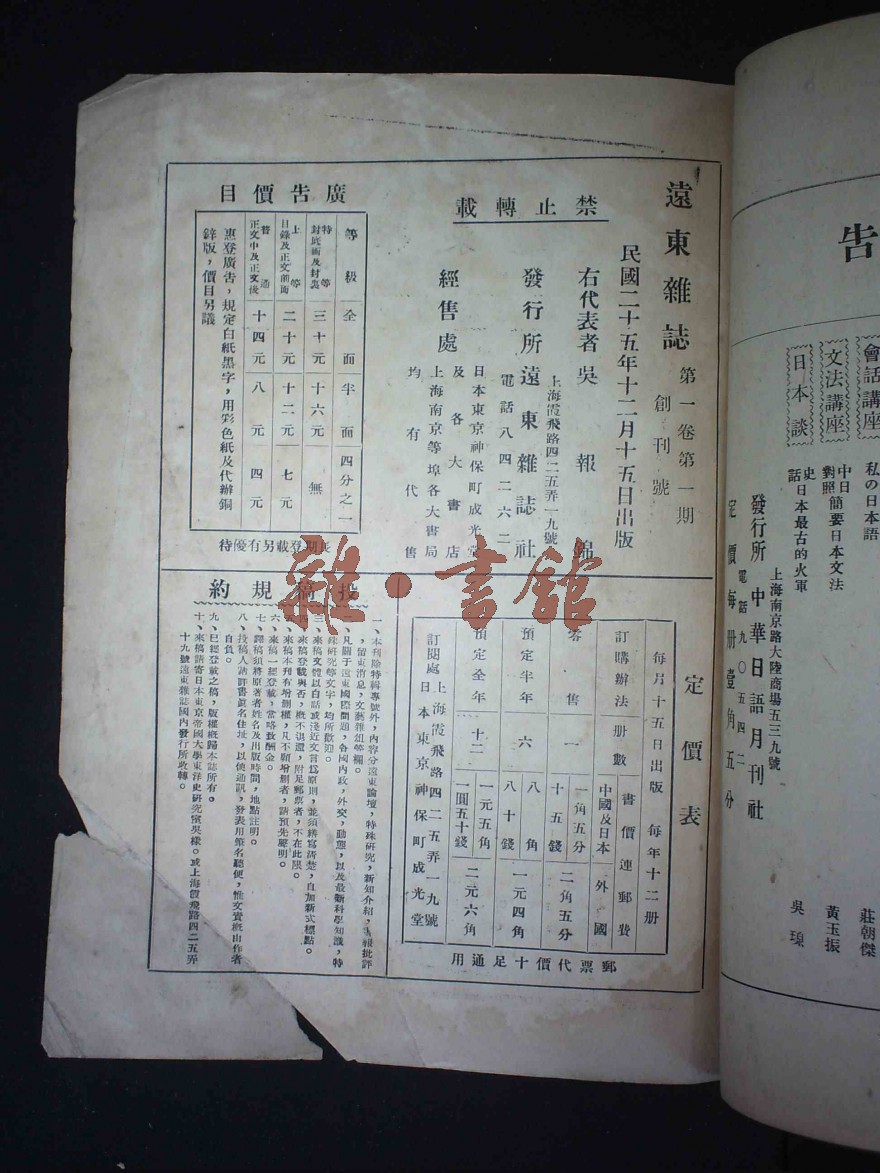 遠東雜誌 第一卷第一期
創刊號
民國二十五年十二月十五日出版
禁止轉載
右代表者 吳報錦
上海霞飛路四二五弄一九號
發行所 遠東雜誌社
電話八四二六二
日本東京神保町成光堂
經售處 及各大書店
上海南京等埠各大書局
均有代售
廣告價目
等級 全面 半面 四分之一
特等 封底面及封裏 三十元 十六元 無
上等 目錄及正文前面 二十元 十二元 七元
普通 正文中及正文後 十四元 八元 四元
惠登廣告,規定白紙黑字,用彩色紙及代辦銅
鋅版,價目另議
長期登載另有優待
定價表
每月十五日出版 每年十二册
訂購辦法 册數 書價連郵費
中國及日本 外國
零售 一 一角五分 十五錢 二角五分
預定半年 六 八角 八十錢 一元四角
預定全年 十二 一元五角 一圓五十錢 二元六角
訂閱處 上海霞飛路四二五弄一九號
日本東京神保町成光堂
郵票代價十足通用
投稿規約
一、本刊除特輯專號外,內容分遠東論壇,特殊研究,新知介紹,書報批評
,留東消息,文藝雜俎等欄。
二、凡關于遠東國際問題,各國內政,外交,動態,以及最新科學知識,特
殊研究等文字,均所歡迎。
三、來稿文體以白話或淺近文言爲原則,並須繕寫清楚,自加新式標點。
四、來稿登載與否,概不退還,附足郵票者,不在此限。
五、來稿本刊有增删權,凡不願增删者,請預先聲明。
六、來稿一經登載,當略致酬金。
七、譯稿須將原著者姓名及出版時間,地點註明。
八、投稿人請詳書眞名住址,以便通訊,發表用筆名聽便,惟文責概由作者
自負。
九、已經登載之稿,版權概歸本誌所有。
十、來稿請寄日本東京帝國大學東洋史研究室吳樣。或上海霞飛路四二五弄
十九號遠東雜誌國內發行所收轉。
雜·書館
告
會話講座
私の日本語
莊朝傑
文法講座
中日對照 簡要日本文法
黃玉振
日本談
史話 日本最古的火軍
吳琼
上海南京路大陸商場五三九號
發行所 中華日語月刊社
電話九〇五四二
定價每册壹角五分